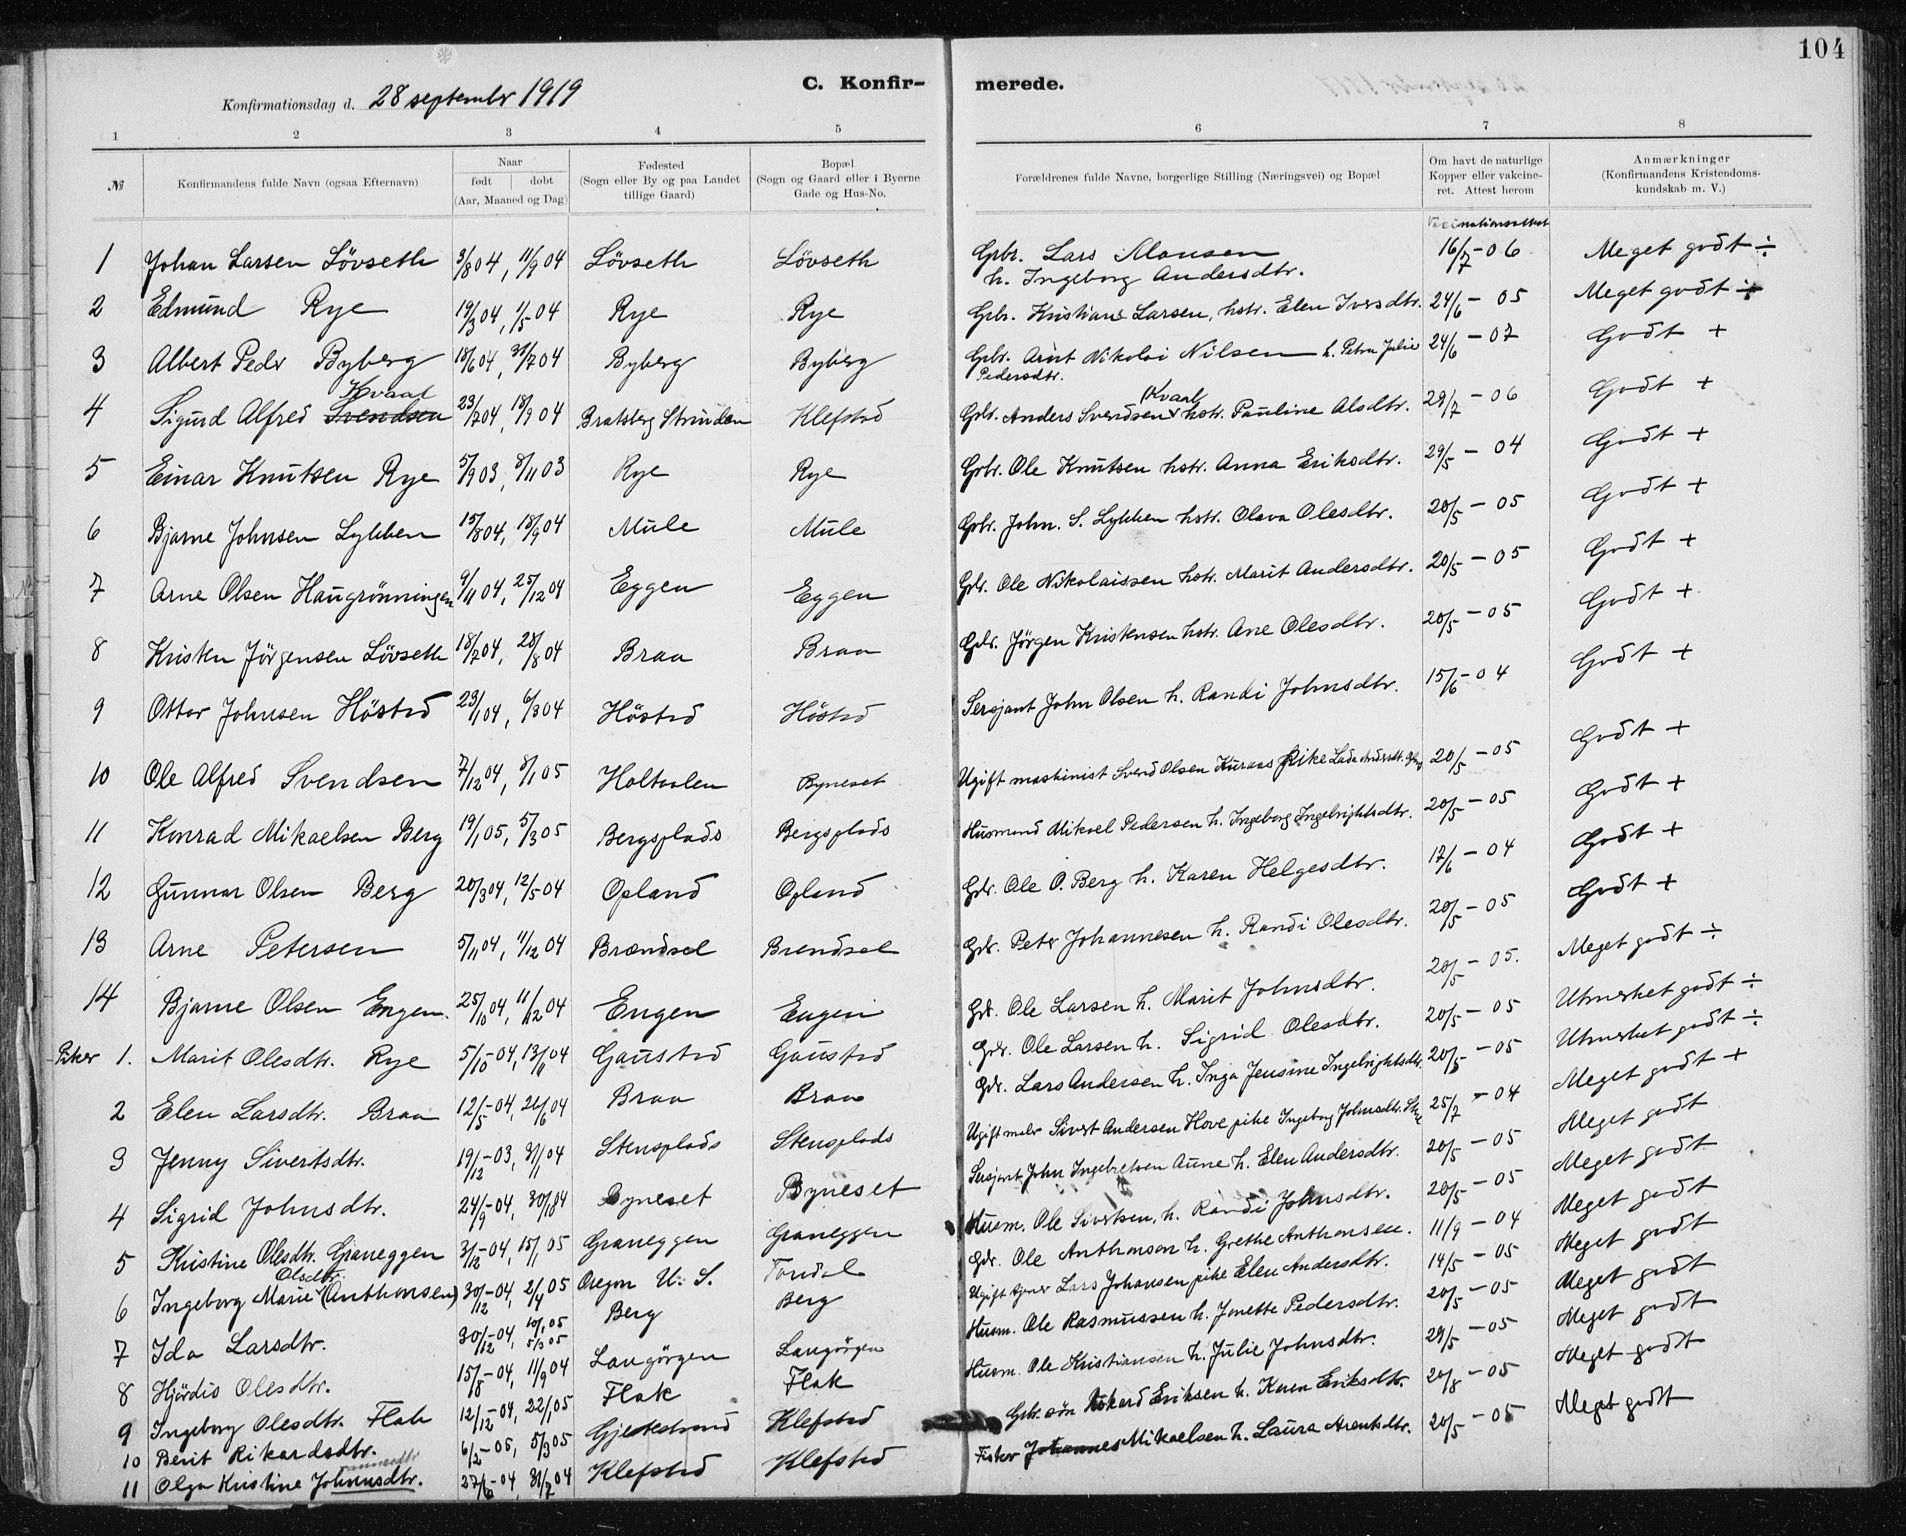 104
C. Konfir- merede.
Konfirmationsdag d. 28 september 1919
1 2 3 4 5 6 7 8
№ Konfirmandens fulde Navn (ogsaa Efternavn) Naar født døbt (Aar, Maaned og Dag) Fødested (Sogn eller By og paa Landet tillige Gaard) Bopæl (Sogn og Gaard eller i Byerne Gade og Hus-No. Forældrenes fulde Navne, borgerlige Stilling (Næringsvei) og Bopæl Om havt de naturlige Kopper eller vakcineret. Attest herom Anmærkninger (Konfirmandens Kristendomskundskab m. V.)
1 Johan Larsen Lövseth 3/8 04, 11/9 04 Lövseth Lövseth Gbr. Lars Monsen h. Ingeborg Andersdtr. 16/7-06 Meget godt ÷
2 Edmund Rye 19/3 04, 1/5-04 Rye Rye Gbr. Kristian Larsen, hstr. Elen Iversdtr. 24/6-05 Meget godt
3 Albert Peder Byberg 18/6 04, 31/7 04 Byberg Byberg Gbr. Arnt Nikolai Nilsen h. Petra Julie Pedersdtr. 24/6-07 Godt +
4 Sigurd Alfred Svendsen Kvaal 23/7 04, 18/9 04 Bratsberg Strinden Klefstad Gbr. Anders Svendsen Kvaal hstr. Pauline Alsdtr. 29/7-06 Godt +
5 Einar Knutsen Rye 5/9 03, 8/11 03 Rye Rye Gbr. Ole Knutsen hstr. Anna Eriksdtr. 29/5-04 Godt +
6 Bjarne Johnsen Lykken 15/8 04, 18/9 04 Mule Mule Gbr. John. S. Lykken hstr. Olava Olesdtr. 20/5-05 Godt +
7 Arne Olsen Haugrönningen 9/11 04, 25/12 04 Eggen Eggen Gbr. Ole Nikolaissen hstr. Marit Andersdtr. 20/5-05 Godt +
8 Kristen Jörgensen Lövseth 18/7 04, 28/8 04 Braa Braa Gbr. Jörgen Kristensen hstr. Ane Olesdtr. 20/5-05 Godt +
9 Ottar Johnsen Höstad 23/1 04, 6/3 04 Höstad Höstad Sersjant John Olsen h. Randi Johnsdtr. 15/6-04 Godt +
10 Ole Alfred Svendsen 7/12 04, 8/1 05 Holtaalen Byneset Ugift maskinist Svend Olsen Kuraas Pike 20/5-05 Godt +
11 Konrad Mikaelsen Berg 19/1 05, 5/3 05 Bergsplads Bergsplads Husmand Mikael Pedersen h. Ingeborg Ingebrightsdtr. 20/5-05 Godt +
12 Gunnar Olsen Berg 20/3 04, 12/5-04 Opland Opland Gbr. Ole O. Berg h. Karen Helgesdtr. 17/6-04 Godt +
13 Arne Petersen 5/11 04, 11/12 04 Brændsel Brendsel Gbr. Peter Johannesen h. Randi Olesdtr. 20/5-05 Godt +
14 Bjarne Olsen Engen. 25/10 04, 11/12 04 Engen Engen Gbr. Ole Larsen h. Marit Johnsdtr. 20/5-05. Meget godt ÷
Piker 1. Marit Olesdtr. Rye 5/10-04, 13/11 04 Gaustad Gaustad Gbr. Ole Larsen h. Sigrid Olesdtr. 20/5-05 Utmerket godt ÷
2 Elen Larsdtr. Braa 12/5-04, 26/6 04 Braa Braa Gbr. Lars Andersen h. Inga Jensine Ingebrightsdtr. 20/5-05 Utmerket godt ÷
3 Jenny Sivertsdtr. 19/12-03, 31/1 04 Stensplads Stensplads Ugift maler Sivert Andersen Hove pike Ingeborg Johnsdtr. 25/7-04 Meget godt +
4 Sigrid Johnsdtr. 24/9-04, 30/10 04 Byneset Byneset Sersjant John Ingebretsen Aune h. Elen Andersdtr. 20/5-05 Meget godt
5 Kristine Olesdtr. Graneggen 3/12-04, 15/1 05 Graneggen Graneggen Husm. Ole Sivertsen, h. Randi Johnsdtr. 20/5-05 Meget godt
6 Ingeborg Marie Olsdtr. (Anthonsen) 30/12-04, 2/4 05 Oregon U. S. Gbr. Ole Anthonson h. Grethe Anthonsen. 11/9-04 Meget godt
7 Ida Larsdtr. 30/12-04, 10/1 05 5/3 05 Berg Berg Ugift Lars Johansen pike Elen Andersdtr. 14/5-05 Meget godt
8 Hjördis Olesdtr. 15/8-04, 11/9 04 Langörgen Langörgen Husm. Ole Rasmussen h. Jonette Pedersdtr. 20/5-05 Meget godt
9 Ingeborg Olesdtr. Flak 12/12-04, 22/1 05 Flak Flak Husm. Ole Kristiansen h. Julie Johnsdtr. 29/5-05 Meget godt
10 Berit Rikardsdtr. 6/2-05, 5/3 05 Gjeskestrand Klefstad Gbr. sön Rikard Eriksen h. Karen Eriksdtr. 20/8-05 Meget godt
11 Olga Kristine Johnnsdtr. 27/6-04, 31/7 04 Klefstad Klefstad Fisker Johannes Mikaelsen h. Laura Arentsdtr. 20/5-05 Meget godt